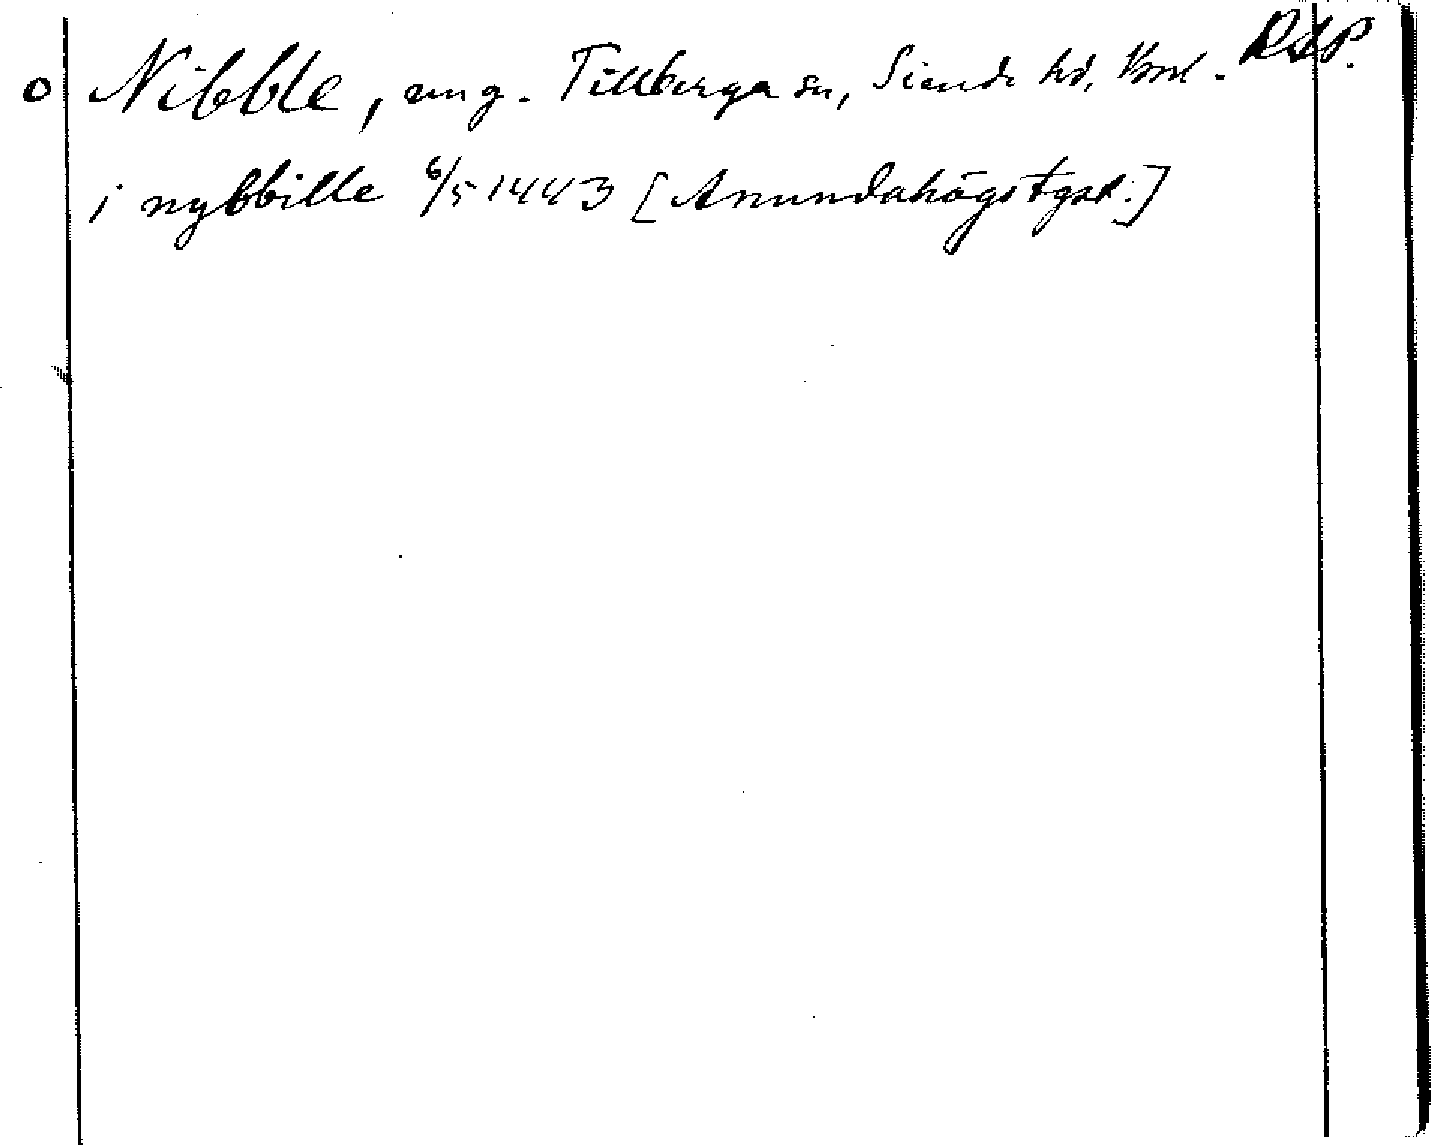 o Nibble, ung. Tillberga sn, Siende hd, Vml. RAP.
i nybbille 6/5 1443 [Anundahögstgst.]